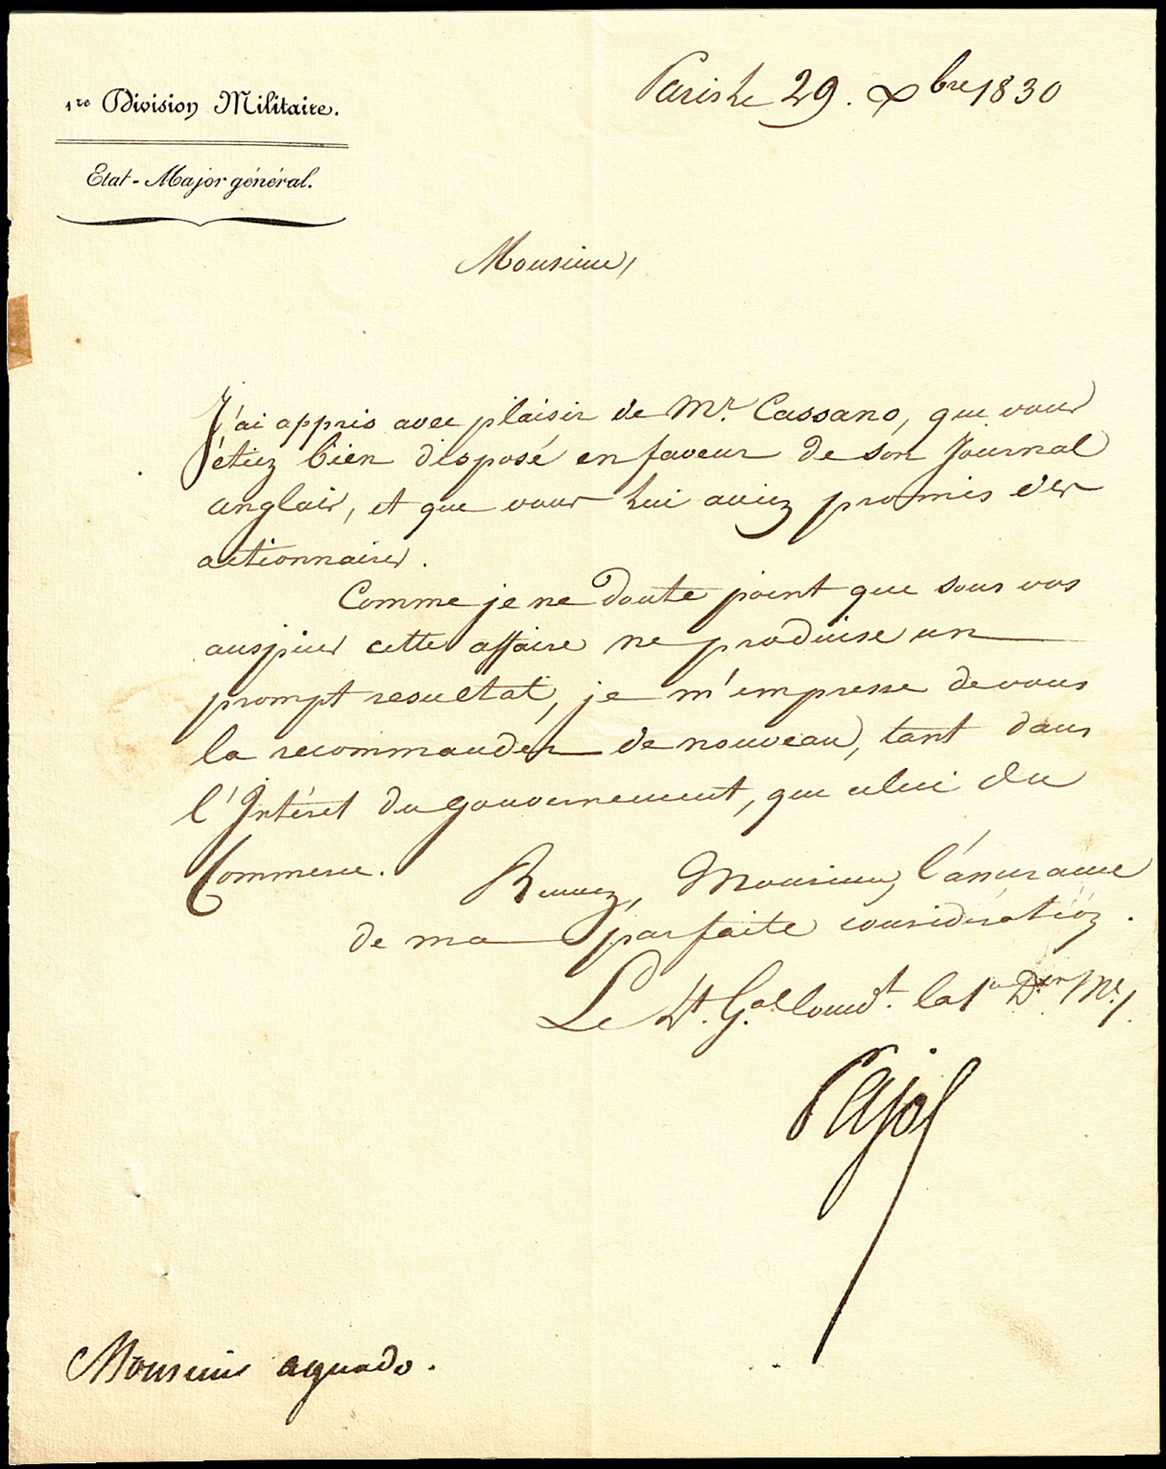 1re Division Militaire.
Etat-Major général.
Paris le 29. Xbre 1830
Monsieur,
J'ai appris avec plaisir de Mr. Cassano, que vous
étiez bien disposé en faveur de son Journal
anglais, et que vous lui aviez promis des
actionnaires.
Comme je ne doute point que sous vos
auspices cette affaire ne produise un
prompt resultat, je m'empresse de vous
la recommander de nouveau, tant dans
l'Intéret du gouvernement, que celui du
Commerce.
Recevez, Monsieur, l'assurance
de ma parfaite considération.
Le Lt. Gal Comdt. la 1re Don Mre.
Pajol
Monsieur aguado.